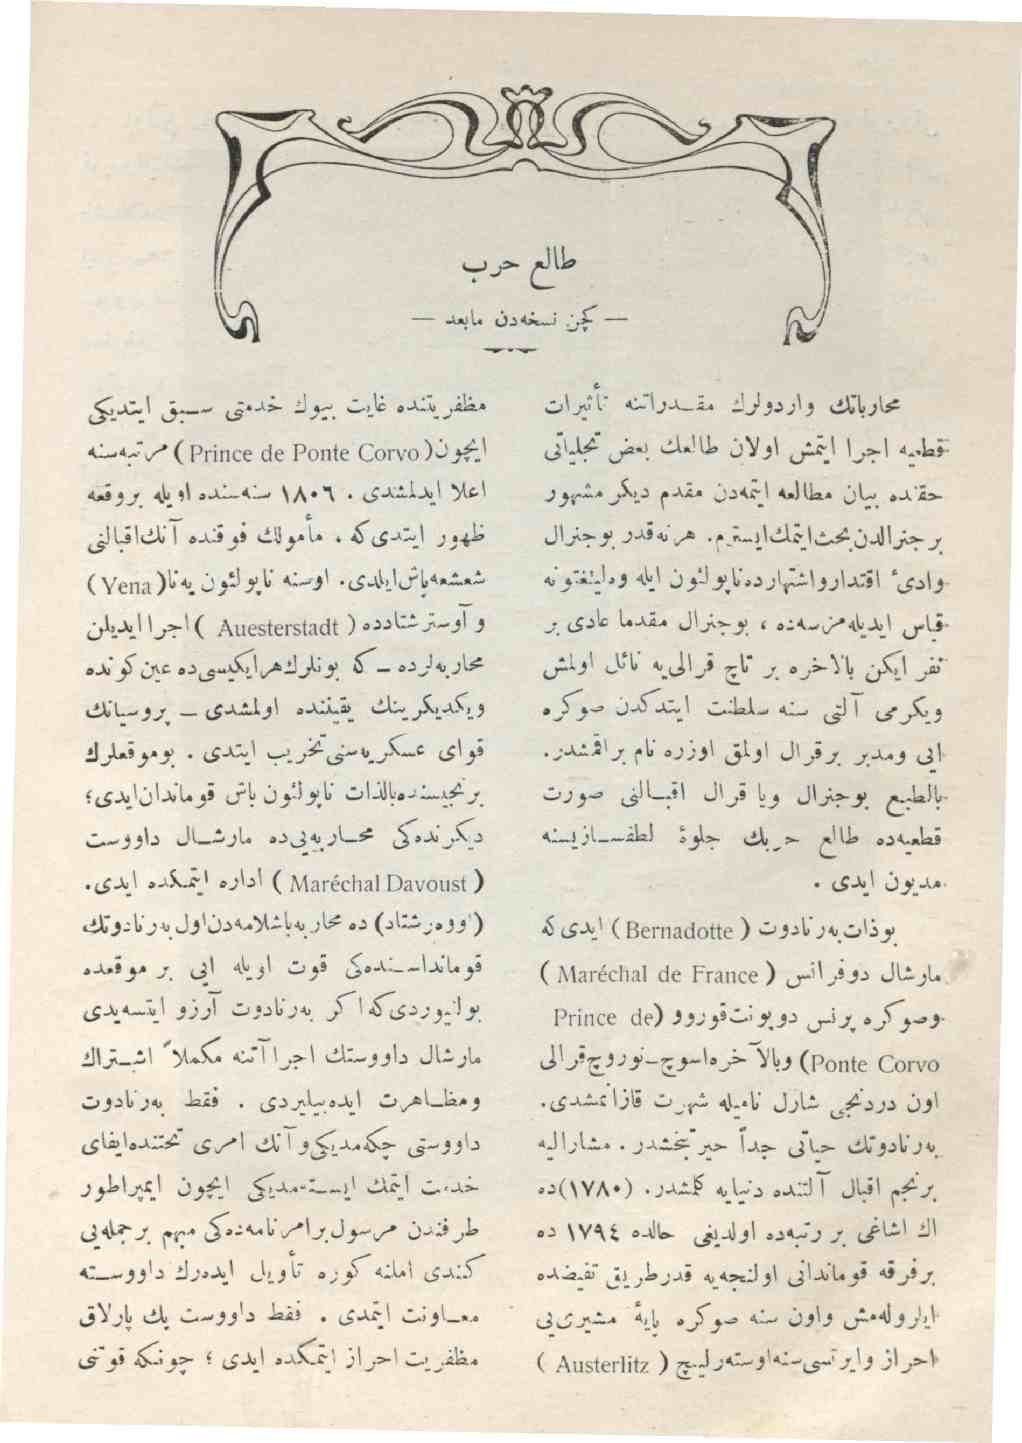 طالع حرب
— كچن نسخه‌دن مابعد —
محارباتك واردولرك مقـدراتنه تأثيرات
قطعيه اجرا ايتمش اولان طالعك بعض تجلياتى
حقنده بيان مطالعه ايتمه‌دن مقدم ديكر مشهور
بر جنرالدن بحث ايتمك ايسترم. هر نه قدر بو جنرال
وادئ اقتدار واشتهارده ناپولئون ايله وه‌لينغتونه
قياس ايديله‌مزسه‌ده ، بو جنرال مقدما عادى بر
نفر ايكن بالاخره بر تاج قرالى‌يه نائل اولمش
ويكرمى آلتى سنه سلطنت ايتدكدن صوكره
ايى ومدبر بر قرال اولمق اوزره نام براقمشدر.
بالطبـع بو جنرال ويا قرال اقبـالنى صورت
قطعيه‌ده طالع حربك جلوۀ لطفسـازيسنه
مديون ايدى .
بو ذات به‌رنادوت ( Bernadotte ) ايدى كه
مارشال دو فرانس ( Maréchal de France )
وصوكره پرنس دو پونت قوروو (Prince de
Ponte Corvo) وبالآخره اسوج-نوروچ قرالى
اون دردنجى شارل ناميله شهرت قازانمشدى.
به‌رنادوتك حياتى جداً حيرتبخشدر . مشاراليه
بر نجم اقبال آلتنده دنيايه كلمشدر. (١٧٨٠) ده
اك اشاغى بر رتبه‌ده اولديغى حالده ١٧٩٤ ده
بر فرقه قوماندانى اولنجه‌يه قدر طريق تفيضده
ايلروله‌مش واون سنه صوكره پايۀ مشيرى‌يى
احراز واير تسى سنه اوسته‌رليچ ( Austerlitz )
مظفريتنده غايت بيوك خدمتى سـبق ايتديكى
ايچون (Prince de Ponte Corvo) مرتبه‌سنه
اعلا ايدلمشدى . ١٨٠٦ سنه‌سنده اويله بر وقعه
ظهور ايتدى كه ، مأمولك فوقنده آنك اقبالنى
شعشعه‌پاش ايلدى. او سنه ناپولئون يه‌نا (Yena )
و آوسترشتادده ( Auesterstadt ) اجرا ايديلن
محاربه‌لرده — كه بونلرك هر ايكيسى‌ده عين كونده
ويكديكرينك يقيننده اولمشدى — پروسيانك
قواى عسكريه‌سنى تخريب ايتدى . بو موقعلرك
برنجيسنده بالذات ناپولئون باش قوماندان ايدى؛
ديكرنده‌كى محـاربه‌يى‌ده مارشـال داووست
( Maréchal Davoust ) اداره ايتمكده ايدى.
(اووه‌رشتاد) ده محاربه باشلامه‌دن اول به‌رنادوتك
قومانداسـنده‌كى قوت اويله ايى بر موقعده
بولنيوردى كه اكر به‌رنادوت آرزو ايتسه‌يدى
مارشال داووستك اجراآتنه مكملاً اشـتراك
ومظـاهرت ايده‌بيليردى . فقط به‌رنادوت
داووستى چكه‌مديكى و آنك امرى تحتنده ايفاى
خدمت ايتمك ايسته‌مديكى ايچون ايمپراطور
طرفندن مرسول بر امرنامه‌ده‌كى مبهم بر جمله‌يى
كندى املنه كوره تأويل ايده‌رك داووسـته
معـاونت ايتمدى . فقط داووست پك پارلاق
مظفريت احراز ايتمكده ايدى ؛ چونكه قوتنى